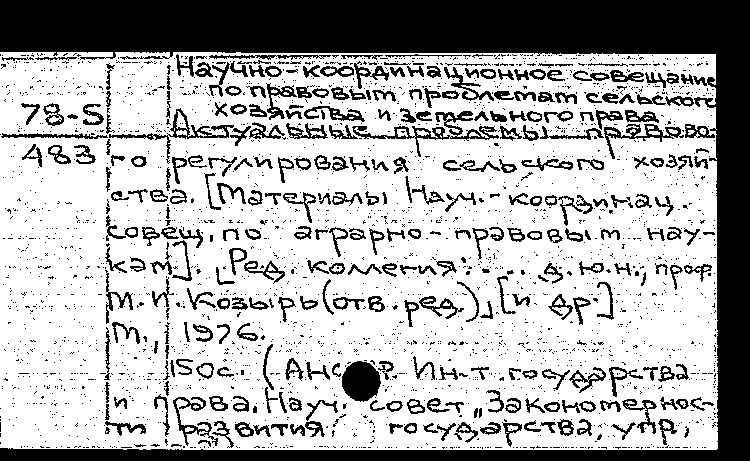 Научно-координационное совещание
по правовым проблемам сельского
78-5 хозяйства и земельного права
Актуальные проблемы правово-
483 го регулирования сельского хозяй-
ства. [Материалы Науч.-координац.
совещ. по аграрно-правовым нау-
кам]. [Ред. коллегия: ... д.ю.н., проф.
М.И. Козырь (отв. ред.), [и др.].
М., 1976.
150с. (АН Ин-т государства
и права. Науч. совет „Закономернос-
ти развития государства, упр,